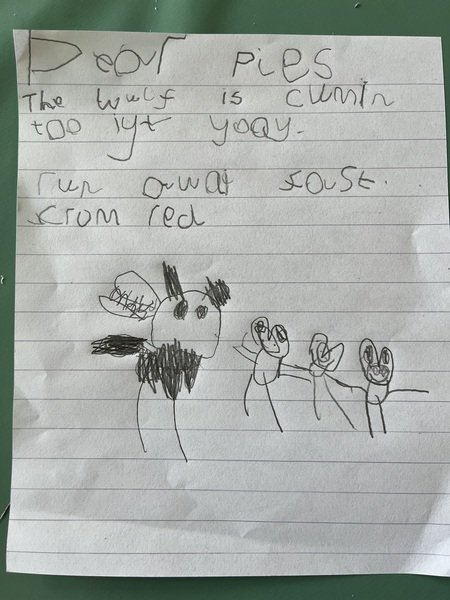 Dear pies
The wulf is cumin
too iyt yoay.
run awat fast.
from red